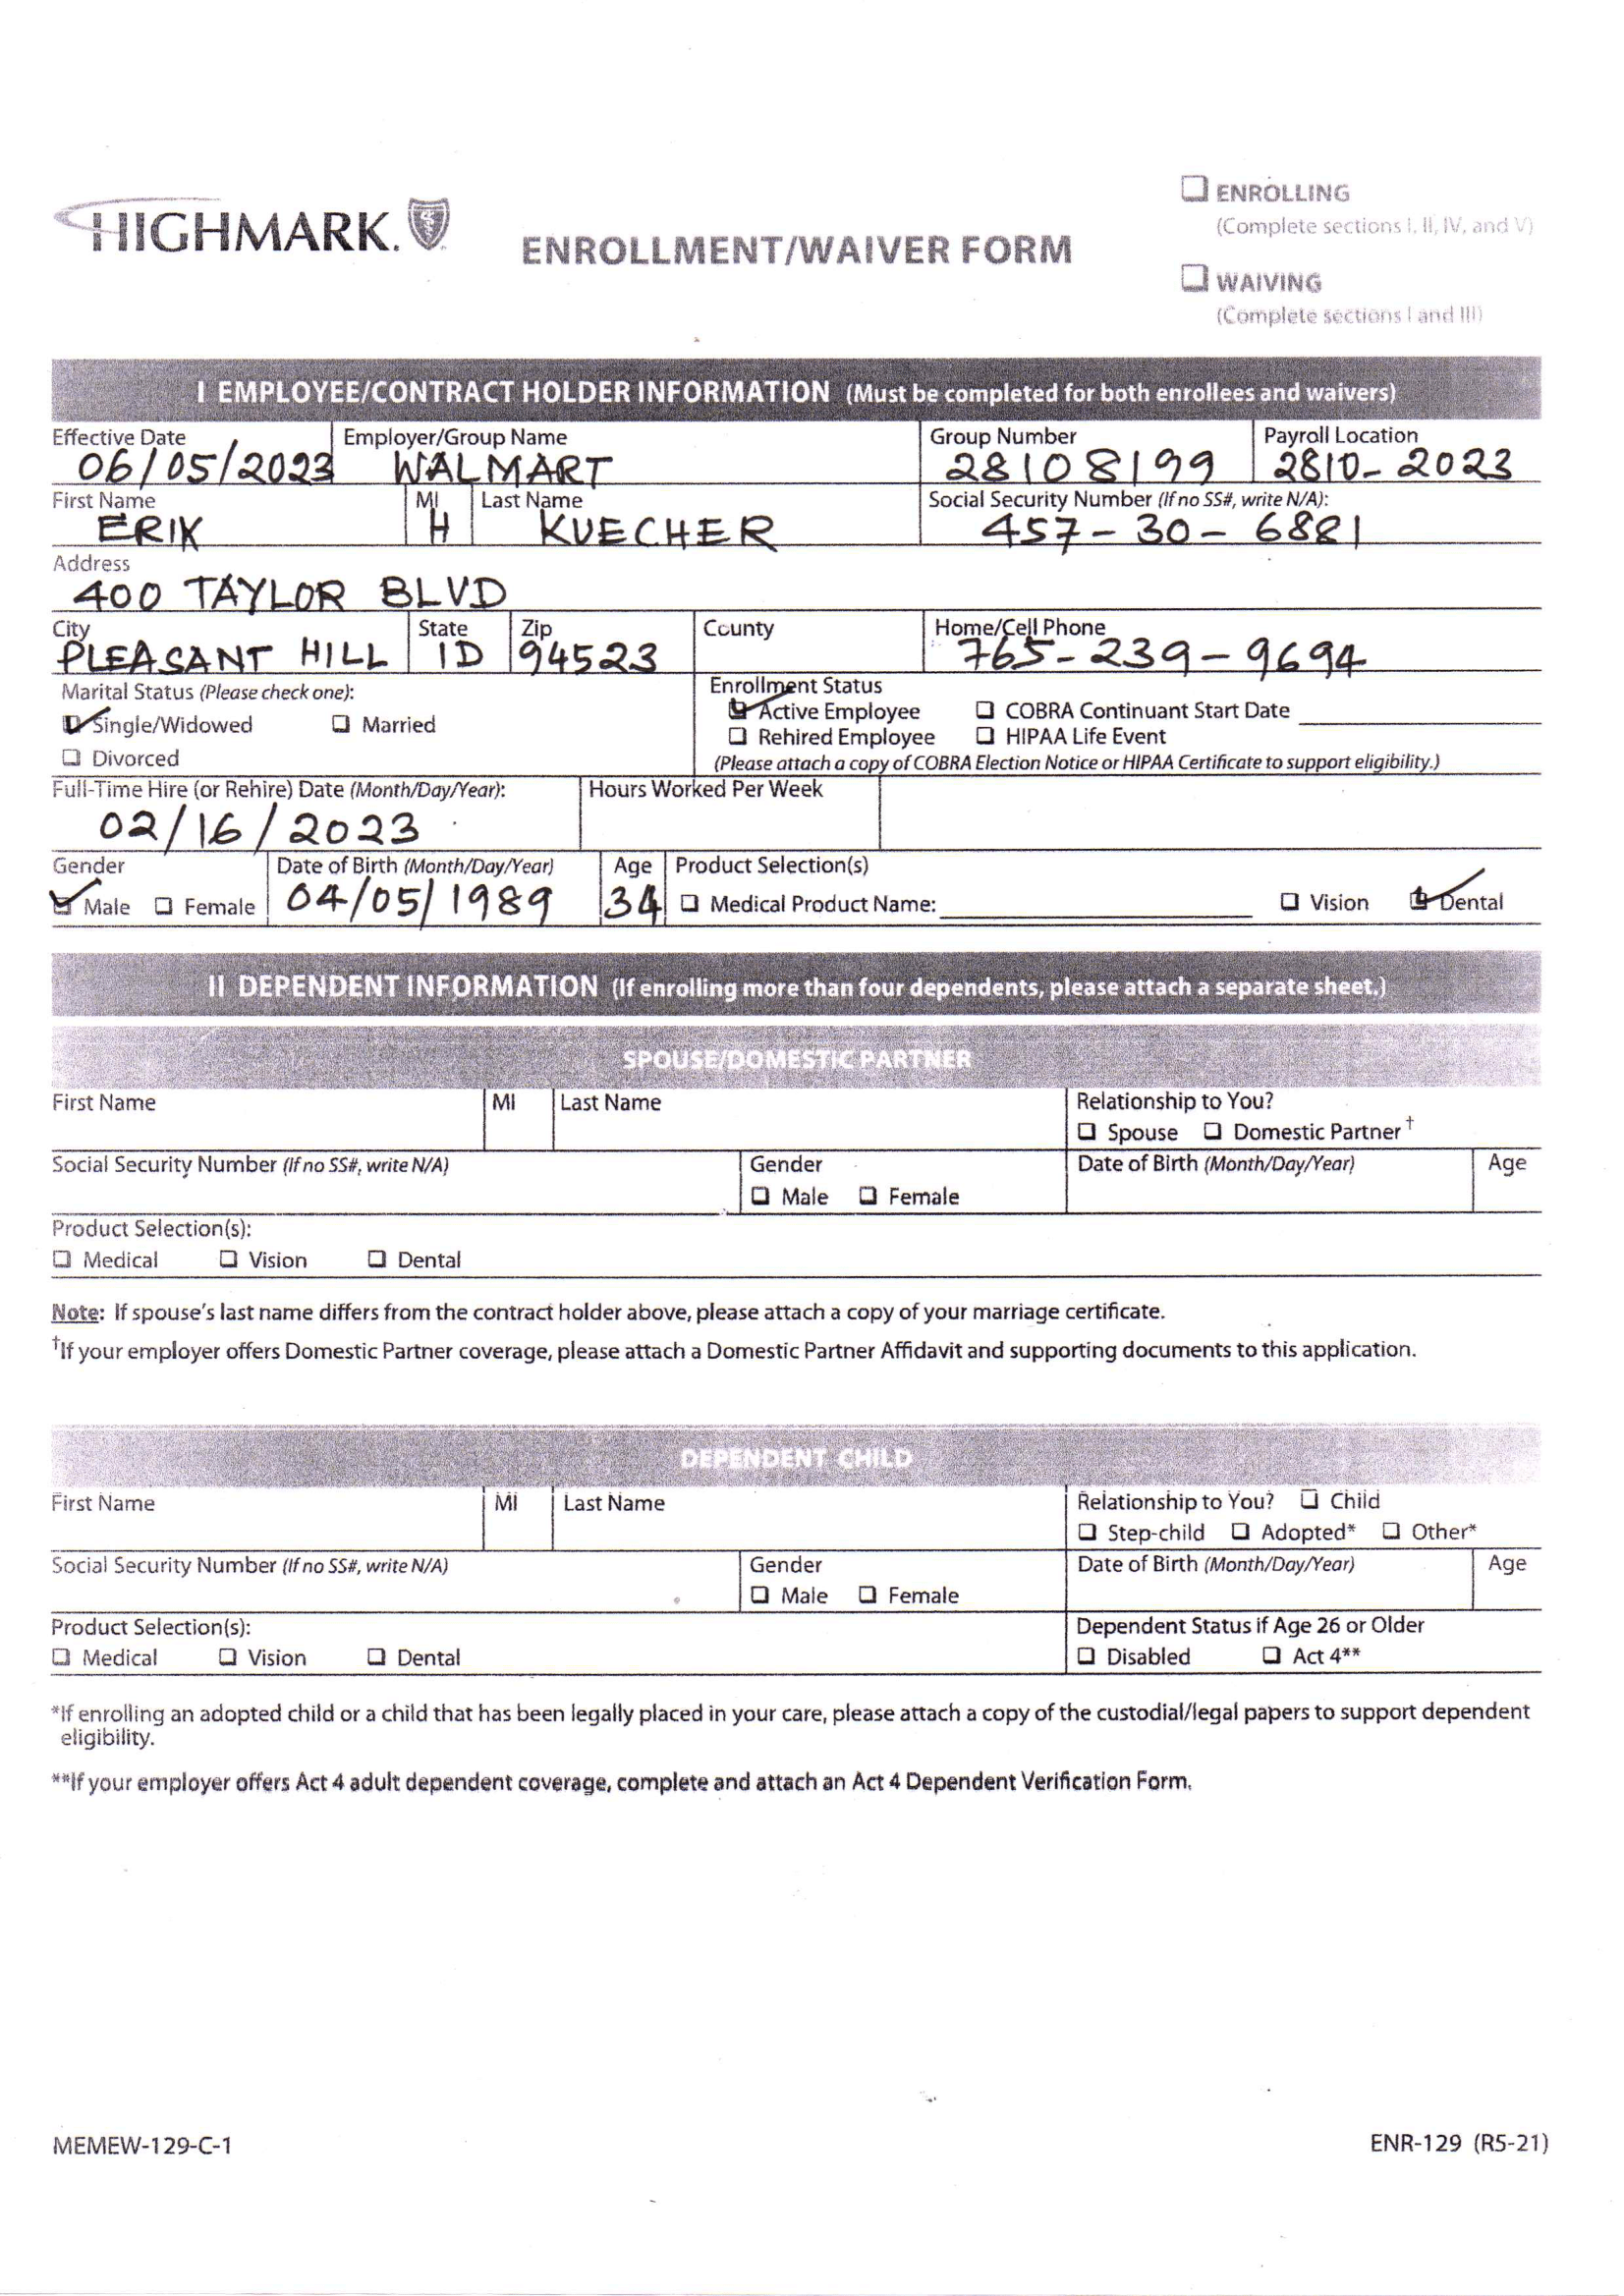 HIGHMARK.
ENROLLMENT/WAIVER FORM
❑ ENROLLING
(Complete sections I, II, IV, and V)
❑ WAIVING
(Complete sections I and III)
I EMPLOYEE/CONTRACT HOLDER INFORMATION (Must be completed for both enrollees and waivers)
Effective Date Employer/Group Name Group Number Payroll Location
06/05/2023 WALMART 28108199 2810-2023
First Name MI Last Name Social Security Number (If no SS#, write N/A):
ERIK H KUECHER 457-30-6881
Address
400 TAYLOR BLVD
City State Zip County Home/Cell Phone
PLEASANT HILL ID 94523 765-239-9694
Marital Status (Please check one): Enrollment Status
Single/Widowed ❑ Married Active Employee ❑ COBRA Continuant Start Date
❑ Divorced ❑ Rehired Employee ❑ HIPAA Life Event
(Please attach a copy of COBRA Election Notice or HIPAA Certificate to support eligibility.)
Full-Time Hire (or Rehire) Date (Month/Day/Year): Hours Worked Per Week
02/16/2023
Gender Date of Birth (Month/Day/Year) Age Product Selection(s)
Male ❑ Female 04/05/1989 34 ❑ Medical Product Name: ❑ Vision Dental
II DEPENDENT INFORMATION (If enrolling more than four dependents, please attach a separate sheet.)
SPOUSE/DOMESTIC PARTNER
First Name MI Last Name Relationship to You?
❑ Spouse ❑ Domestic Partner†
Social Security Number (If no SS#, write N/A) Gender Date of Birth (Month/Day/Year) Age
❑ Male ❑ Female
Product Selection(s):
❑ Medical ❑ Vision ❑ Dental
Note: If spouse's last name differs from the contract holder above, please attach a copy of your marriage certificate.
†If your employer offers Domestic Partner coverage, please attach a Domestic Partner Affidavit and supporting documents to this application.
DEPENDENT CHILD
First Name MI Last Name Relationship to You? ❑ Child
❑ Step-child ❑ Adopted* ❑ Other*
Social Security Number (If no SS#, write N/A) Gender Date of Birth (Month/Day/Year) Age
❑ Male ❑ Female
Product Selection(s): Dependent Status if Age 26 or Older
❑ Medical ❑ Vision ❑ Dental ❑ Disabled ❑ Act 4**
*If enrolling an adopted child or a child that has been legally placed in your care, please attach a copy of the custodial/legal papers to support dependent
eligibility.
**If your employer offers Act 4 adult dependent coverage, complete and attach an Act 4 Dependent Verification Form.
MEMEW-129-C-1 ENR-129 (R5-21)